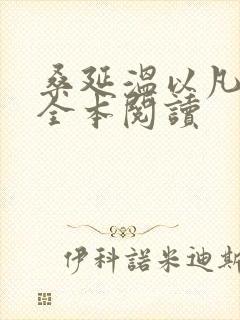 桑延溫以凡
全本閱讀
伊科諾米迪斯